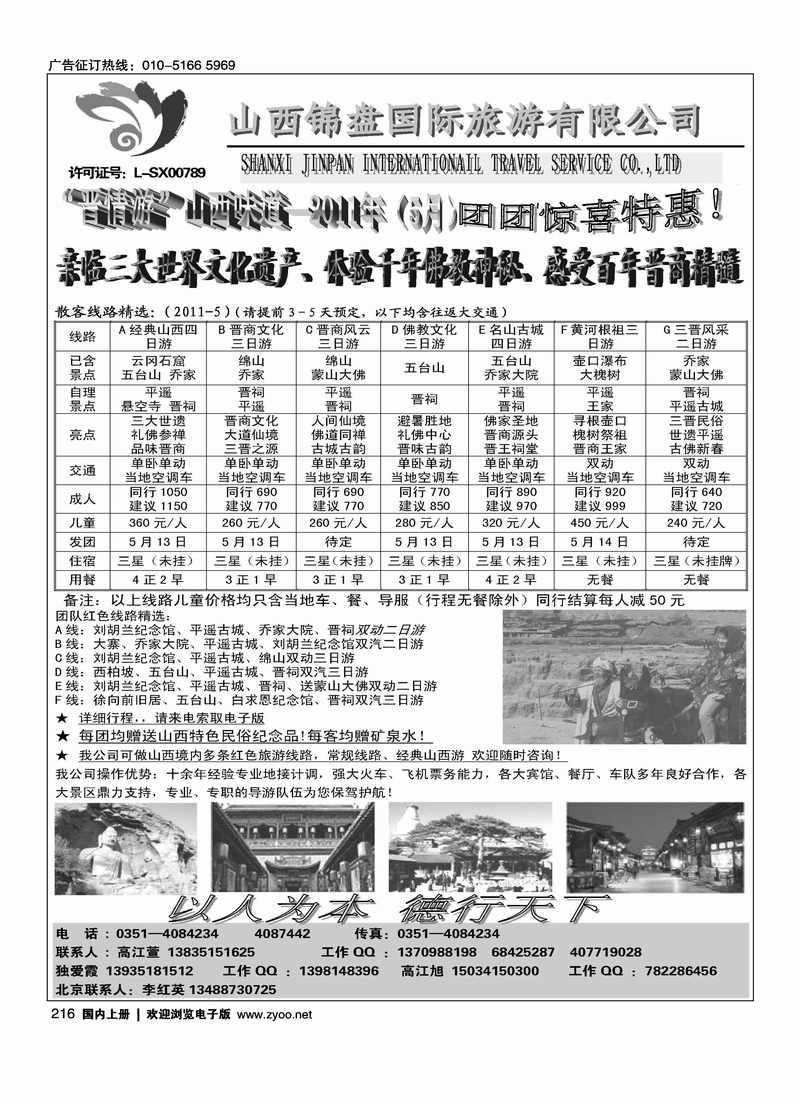 广告征订热线：010-5166 5969
山西锦盘国际旅游有限公司
许可证号：L-SX00789
SHANXI JINPAN INTERNATIONAIL TRAVEL SERVICE CO.,LTD
“晋情游”山西味道—2011年（5月）团团惊喜特惠！
亲临三大世界文化遗产、体验千年佛教神秘、感受百年晋商精髓
散客线路精选：（2011-5）（请提前3-5天预定，以下均含往返大交通）
线路 A经典山西四日游 B晋商文化三日游 C晋商风云三日游 D佛教文化三日游 E名山古城四日游 F黄河根祖三日游 G三晋风采二日游
已含景点 云冈石窟 五台山 乔家 绵山 乔家 绵山 蒙山大佛 五台山 五台山 乔家大院 壶口瀑布 大槐树 乔家 蒙山大佛
自理景点 平遥 悬空寺 晋祠 晋祠 平遥 平遥 晋祠 晋祠 平遥 晋祠 平遥 王家 晋祠 平遥古城
亮点 三大世遗 礼佛参禅 品味晋商 晋商文化 大道仙境 三晋之源 人间仙境 佛道同禅 古城古韵 避暑胜地 礼佛中心 晋味古韵 佛家圣地 晋商源头 晋王祠堂 寻根壶口 槐树祭祖 晋商王家 三晋民俗 世遗平遥 古佛新春
交通 单卧单动 当地空调车 单卧单动 当地空调车 单卧单动 当地空调车 单卧单动 当地空调车 单卧单动 当地空调车 双动 当地空调车 双动 当地空调车
成人 同行1050 建议1150 同行690 建议770 同行690 建议770 同行770 建议850 同行890 建议970 同行920 建议999 同行640 建议720
儿童 360元/人 260元/人 260元/人 280元/人 320元/人 450元/人 240元/人
发团 5月13日 5月13日 待定 5月13日 5月13日 5月14日 待定
住宿 三星（未挂） 三星（未挂） 三星（未挂） 三星（未挂） 三星（未挂） 三星（未挂） 三星（未挂牌）
用餐 4正2早 3正1早 3正1早 3正1早 4正2早 无餐 无餐
备注：以上线路儿童价格均只含当地车、餐、导服（行程无餐除外）同行结算每人减50元
团队红色线路精选：
A线：刘胡兰纪念馆、平遥古城、乔家大院、晋祠双动二日游
B线：大寨、乔家大院、平遥古城、刘胡兰纪念馆双汽二日游
C线：刘胡兰纪念馆、平遥古城、绵山双动三日游
D线：西柏坡、五台山、平遥古城、晋祠双汽三日游
E线：刘胡兰纪念馆、平遥古城、晋祠、送蒙山大佛双动二日游
F线：徐向前旧居、五台山、白求恩纪念馆、晋祠双汽三日游
★ 详细行程，，请来电索取电子版
★ 每团均赠送山西特色民俗纪念品！每客均赠矿泉水！
★ 我公司可做山西境内多条红色旅游线路，常规线路、经典山西游 欢迎随时咨询！
我公司操作优势：十余年经验专业地接计调，强大火车、飞机票务能力，各大宾馆、餐厅、车队多年良好合作，各
大景区鼎力支持，专业、专职的导游队伍为您保驾护航！
以人为本 德行天下
电 话：0351—4084234 4087442 传真：0351—4084234
联系人：高江萱 13835151625 工作QQ：1370988198 68425287 407719028
独爱霞 13935181512 工作QQ：1398148396 高江旭 15034150300 工作QQ：782286456
北京联系人：李红英 13488730725
216 国内上册 | 欢迎浏览电子版 www.zyoo.net